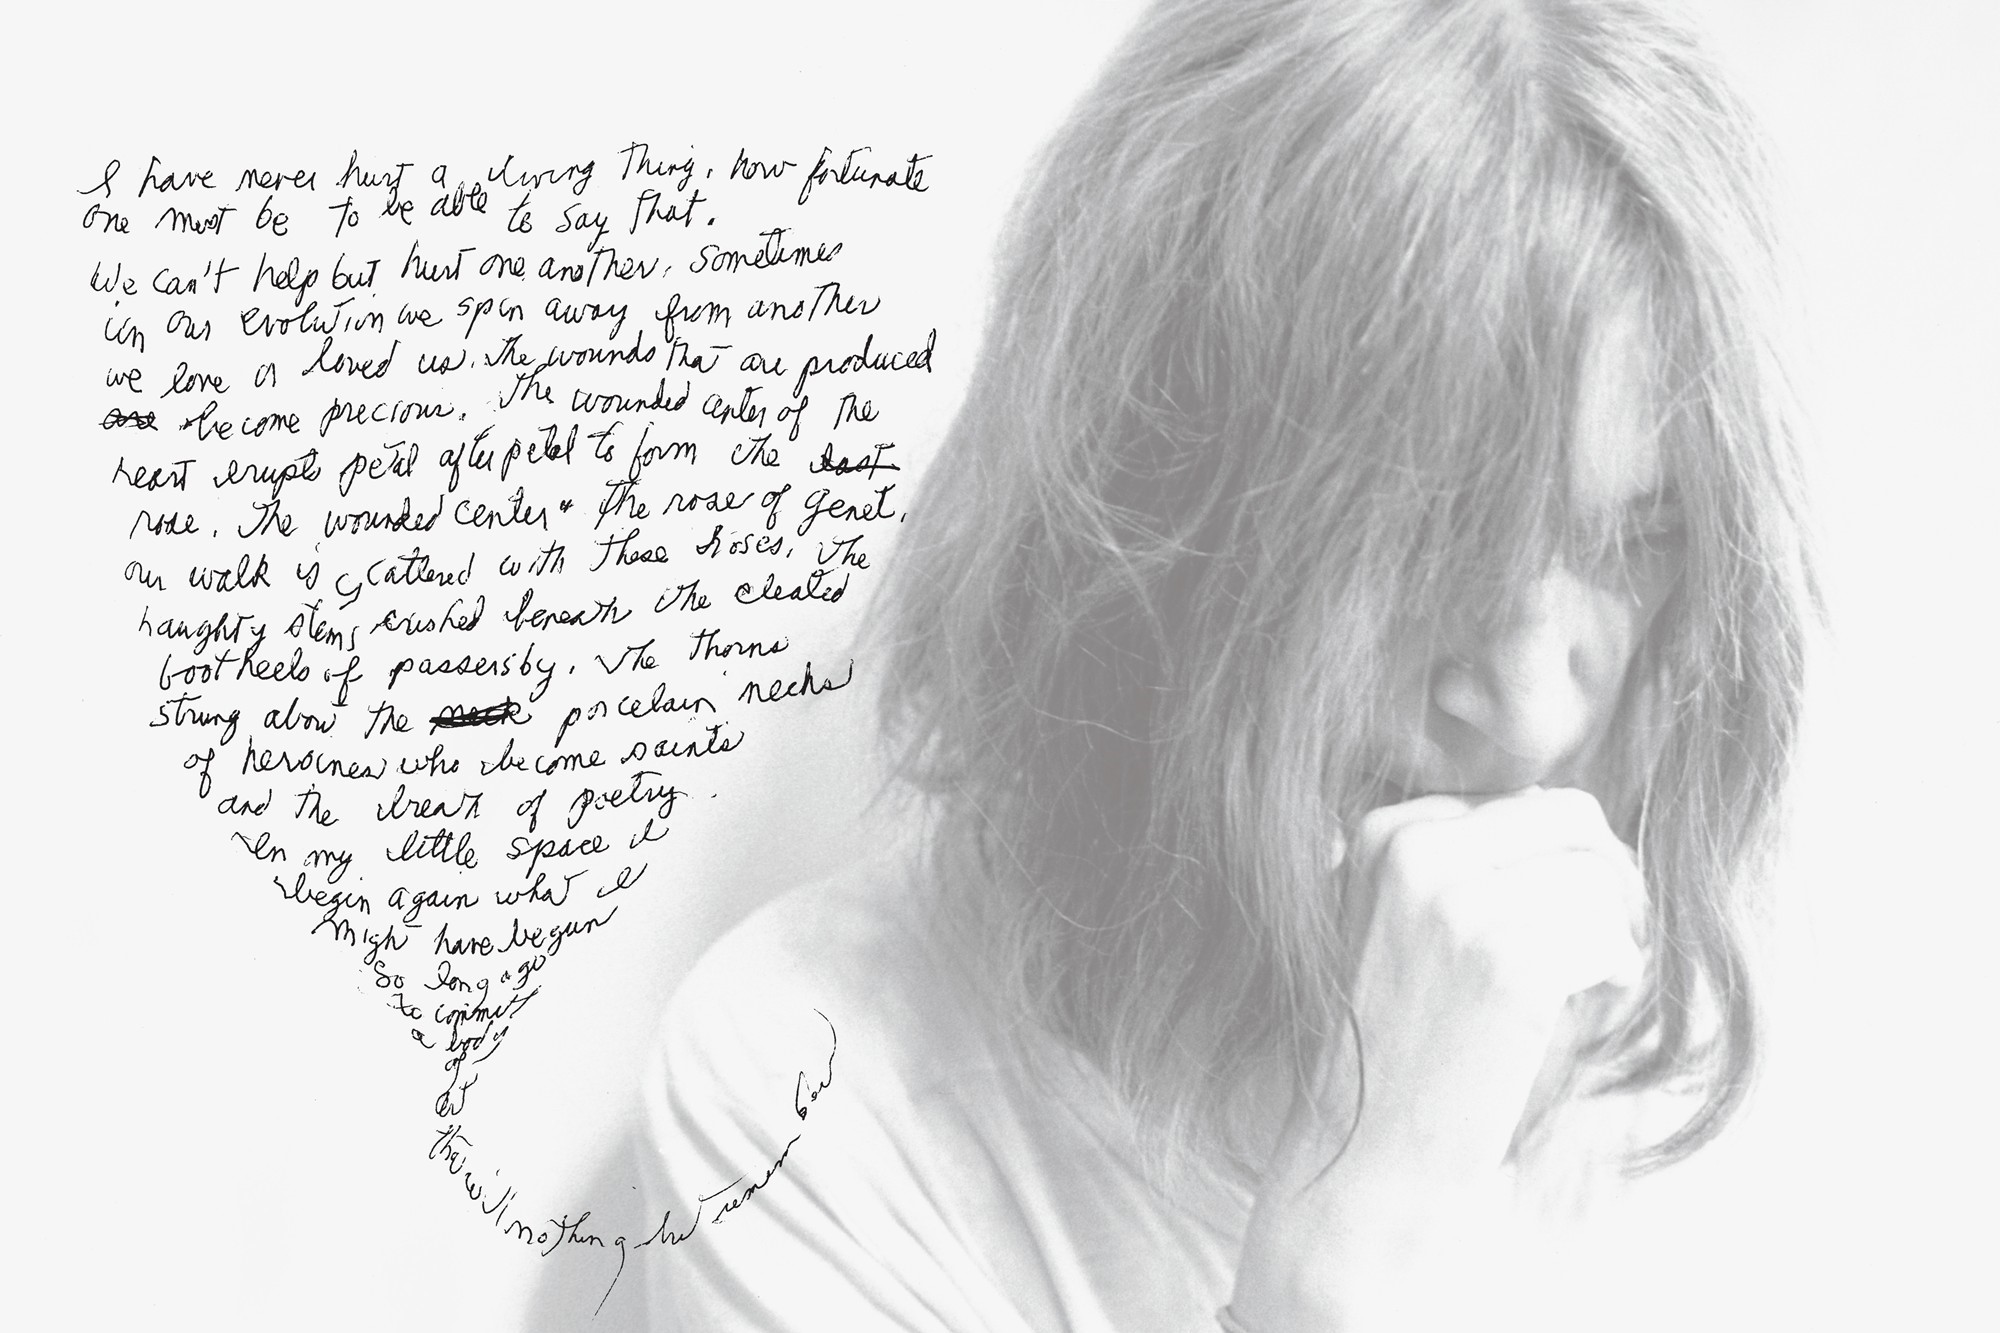 I have never hurt a living thing, how fortunate
one must be to be able to say that.
We can't help but hurt one another. Sometimes
in our evolution we spin away from another
we love or loved us. The wounds that are produced
are become precious. The wounded center of the
heart erupts petal after petal to form the last
rose. The wounded center. The rose of Genet.
our walk is scattered with these roses. The
haughty stems crushed beneath the cleated
boot heels of passersby. The thorns
strung about the neck porcelain necks
of heroines who become saints
and the breath of poetry.
In my little space I
begin again what I
might have begun
So long ago
to commit
a body
of
art
that will nothing but remember